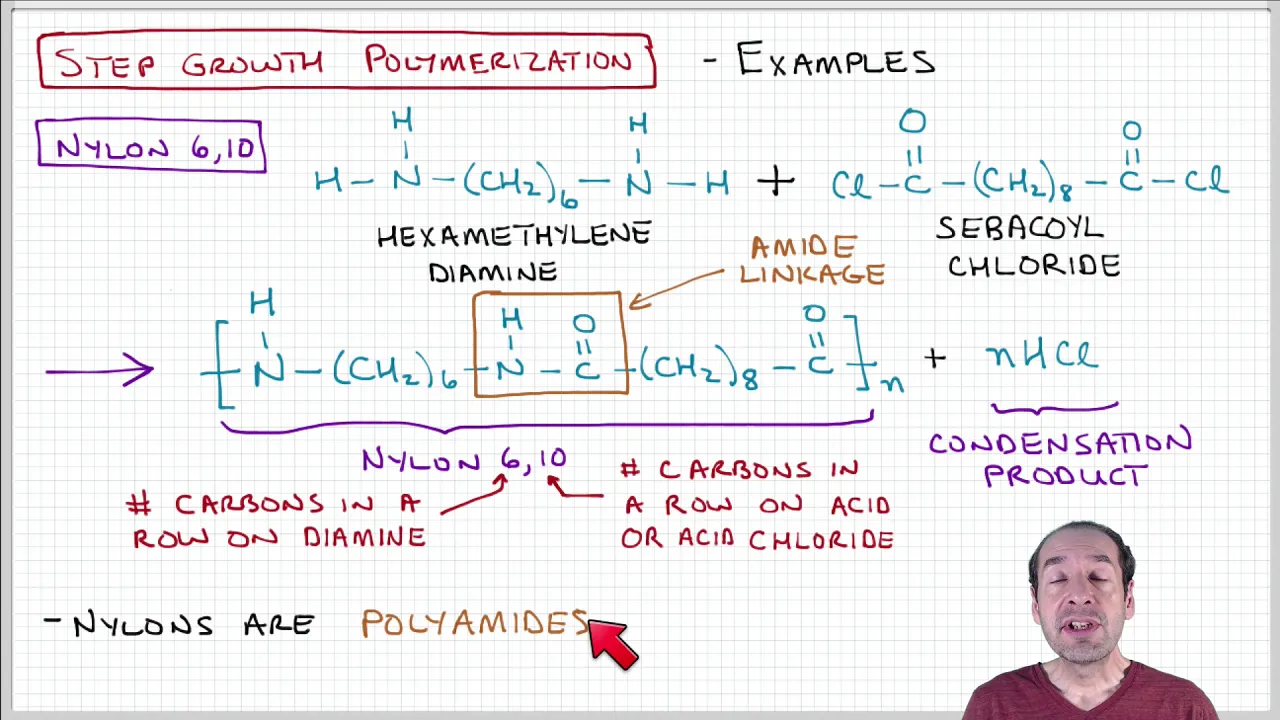 STEP GROWTH POLYMERIZATION - EXAMPLES
NYLON 6,10
H H O O
H - N - (CH₂)₆ - N - H + Cl - C - (CH₂)₈ - C - Cl
HEXAMETHYLENE
DIAMINE
SEBACOYL
CHLORIDE
AMIDE
LINKAGE
H H O O
[- N - (CH₂)₆ - N - C - (CH₂)₈ - C -]n + nHCl
NYLON 6,10
CONDENSATION
PRODUCT
# CARBONS IN A
ROW ON DIAMINE
# CARBONS IN
A ROW ON ACID
OR ACID CHLORIDE
- NYLONS ARE POLYAMIDES